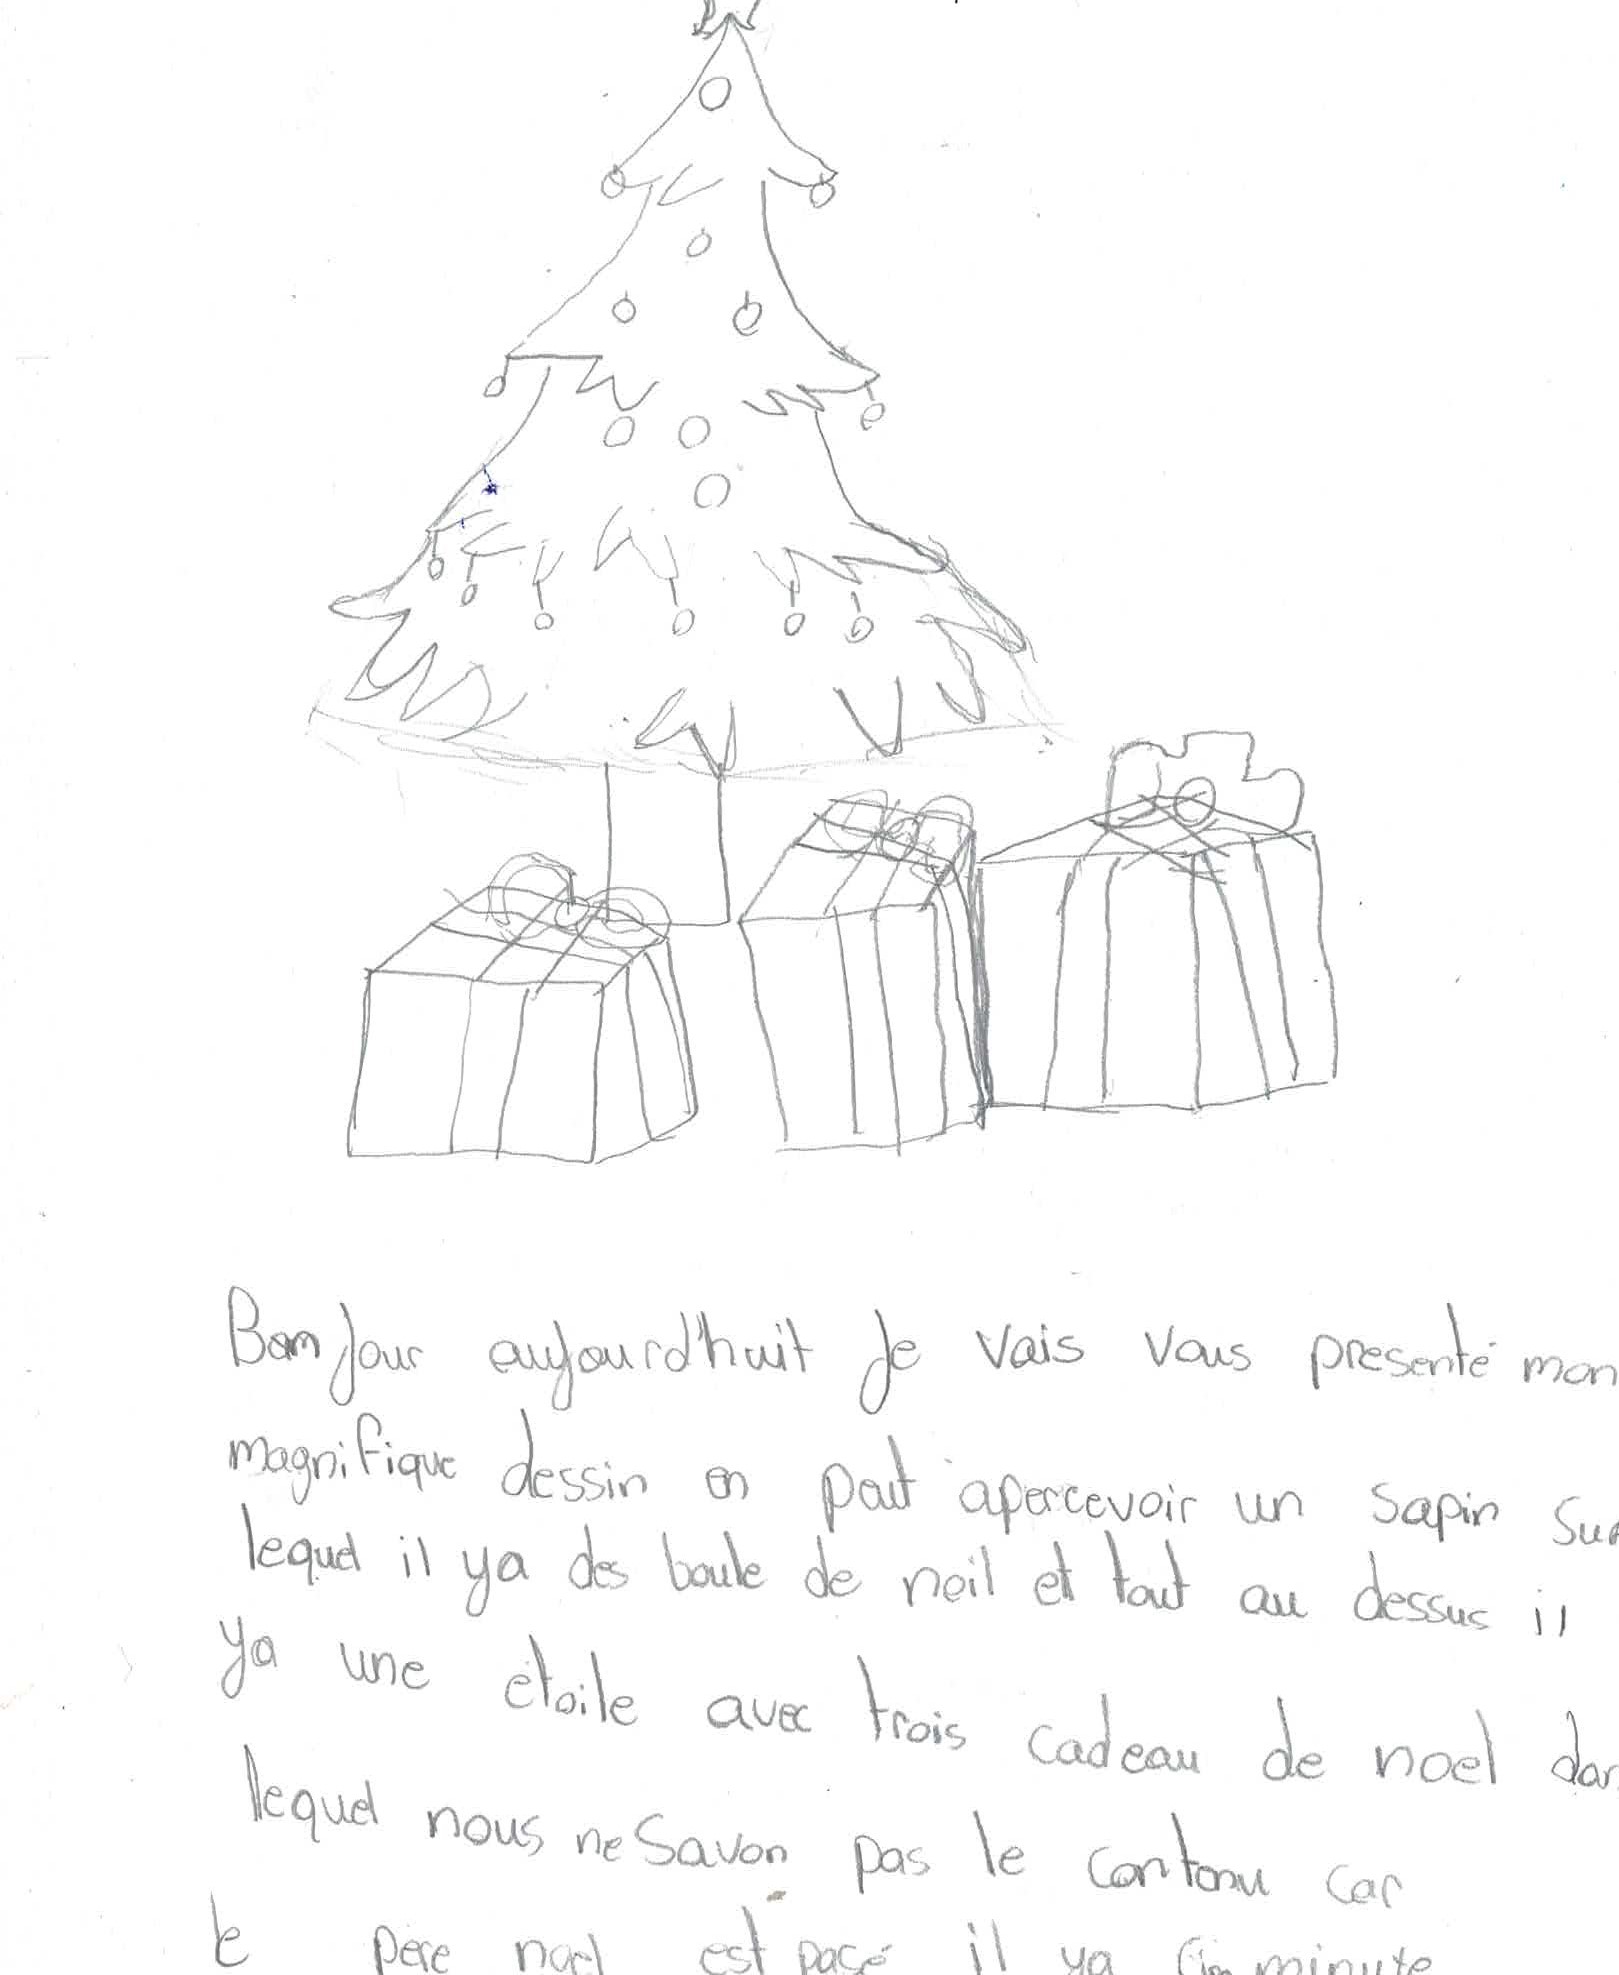 Bonjour aujourd'huit Je vais vous presenté mon
magnifique dessin on peut apercevoir un sapin sur
lequel il ya des boule de noil et tout au dessus il
ya une étoile avec trois cadeau de noel
lequel nous ne savon pas le contenu car
le père noel est pasé il ya minute